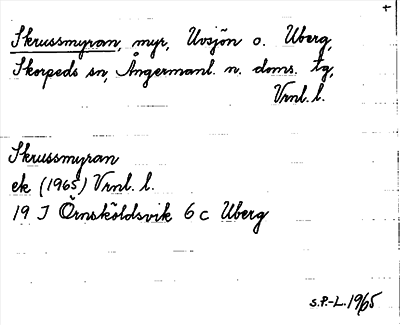 +
Skrussmyran, myr, Uvsjön o. Uberg,
Skorpeds sn, Ångermanl. n. doms. tg,
Vrnl. l.
Skrussmyran
ek (1965) Vrnl. l.
19 J Örnsköldsvik 6 c Uberg
S.P.-L. 1965